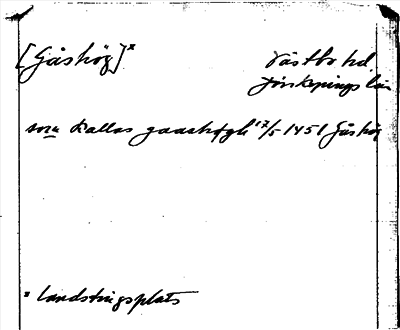 [Gåshög]x
Västbo hd
Jönköpings län
som kallas gaashøgh 17/5 1451 Gåshög
x landstingsplats